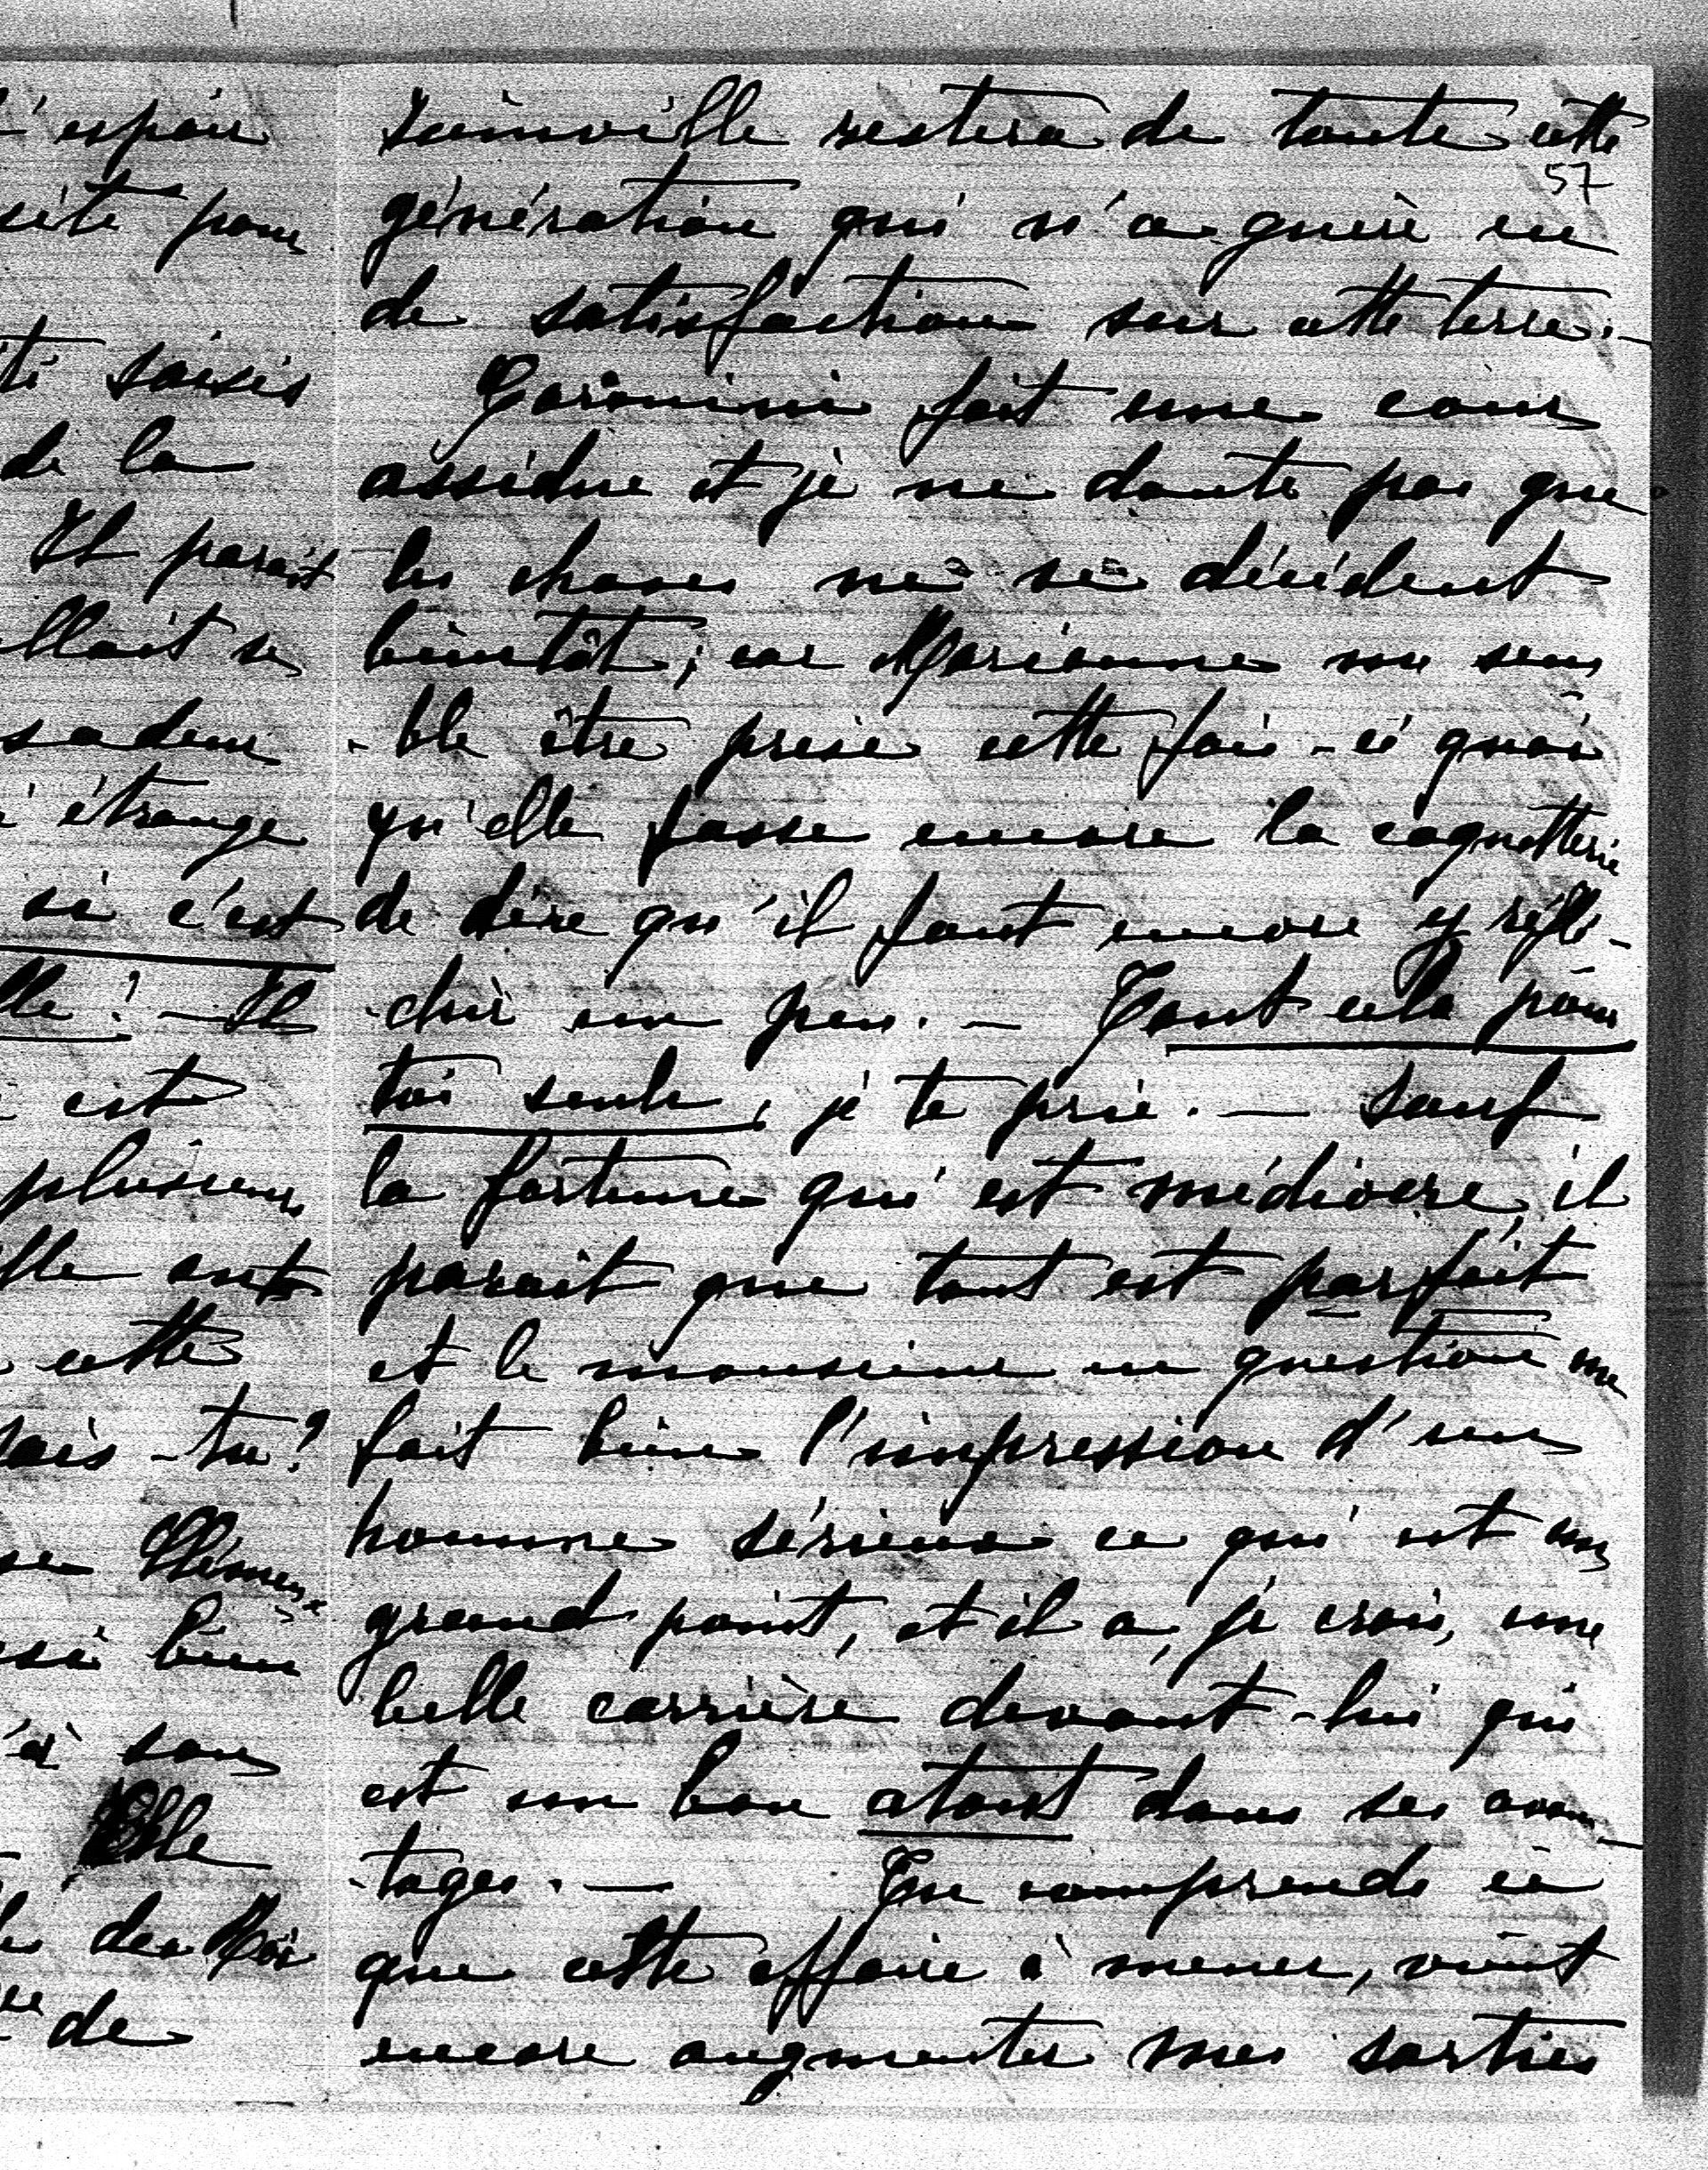 l'espoir
site pour
té saisis
de la
Il paraît
allait se
sadeur
étrange
si c'est
lle ! — Il
est
plusieurs
elle ont
cette
sais-tu ?
se Clémen
ssi bien
à son
Elle
des Rois
de
57
Joinville restera de toute cette
génération qui n'a guère eu
de satisfaction sur cette terre. —
fait une cour
assidue et je ne doute pas que
les choses ne se décident
bientôt ; car Marianne me sem
-ble être prise cette fois-ci quoi
qu'elle fasse encore la coquetterie
de dire qu'il faut encore y réflé-
-chir un peu. — Tout cela pour
toi seule, je te prie. — Sauf
la fortune qui est médiocre, il
paraît que tout est parfait
et le monsieur en question me
fait bien l'impression d'un
homme sérieux ce qui est un
grand point, et il a, je crois, une
belle carrière devant-lui qui
est un bon atout dans ses avan-
-tages. — Tu comprends ici
que cette affaire à mener, vient
encore augmenter mes sorties